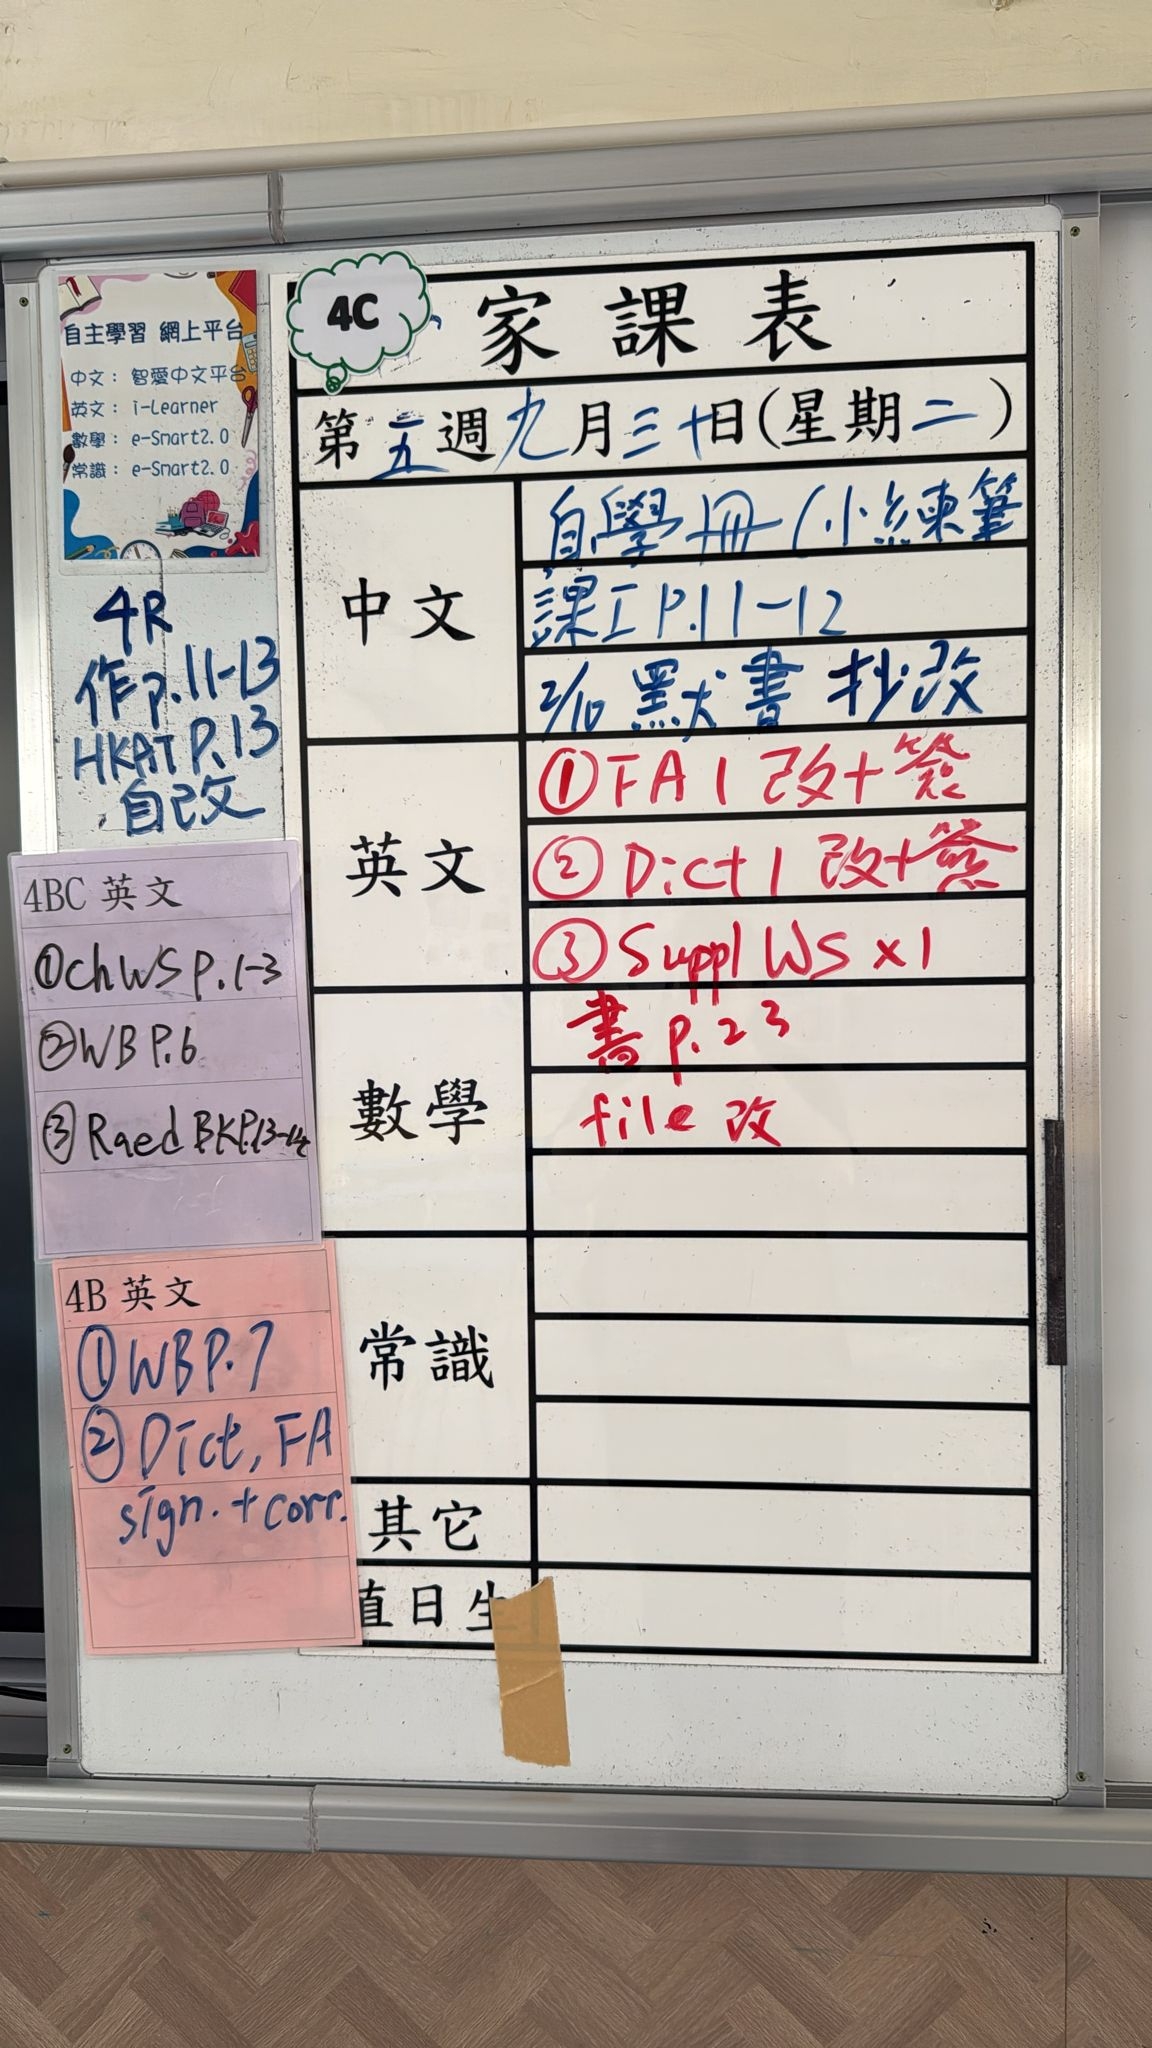 4C
家課表
第五週九月三十日(星期二)
自主學習 網上平台
中文：智愛中文平台
英文：i-Learner
數學：e-Smart2.0
常識：e-Smart2.0
4R
作p.11-13
HKAT P.13
自改
4BC 英文
①ChWS p.1-3
②WB P.6
③Raed BKP.13-14
4B 英文
①WBP.7
②Dict, FA
sign. + corr.
中文
自學冊/小練筆
課工P.11-12
2/10 默書 抄改
英文
①FA 1 改+簽
②Dict 1 改+簽
③Suppl WS x1
數學
書 p.23
file 改
常識
其它
直日生